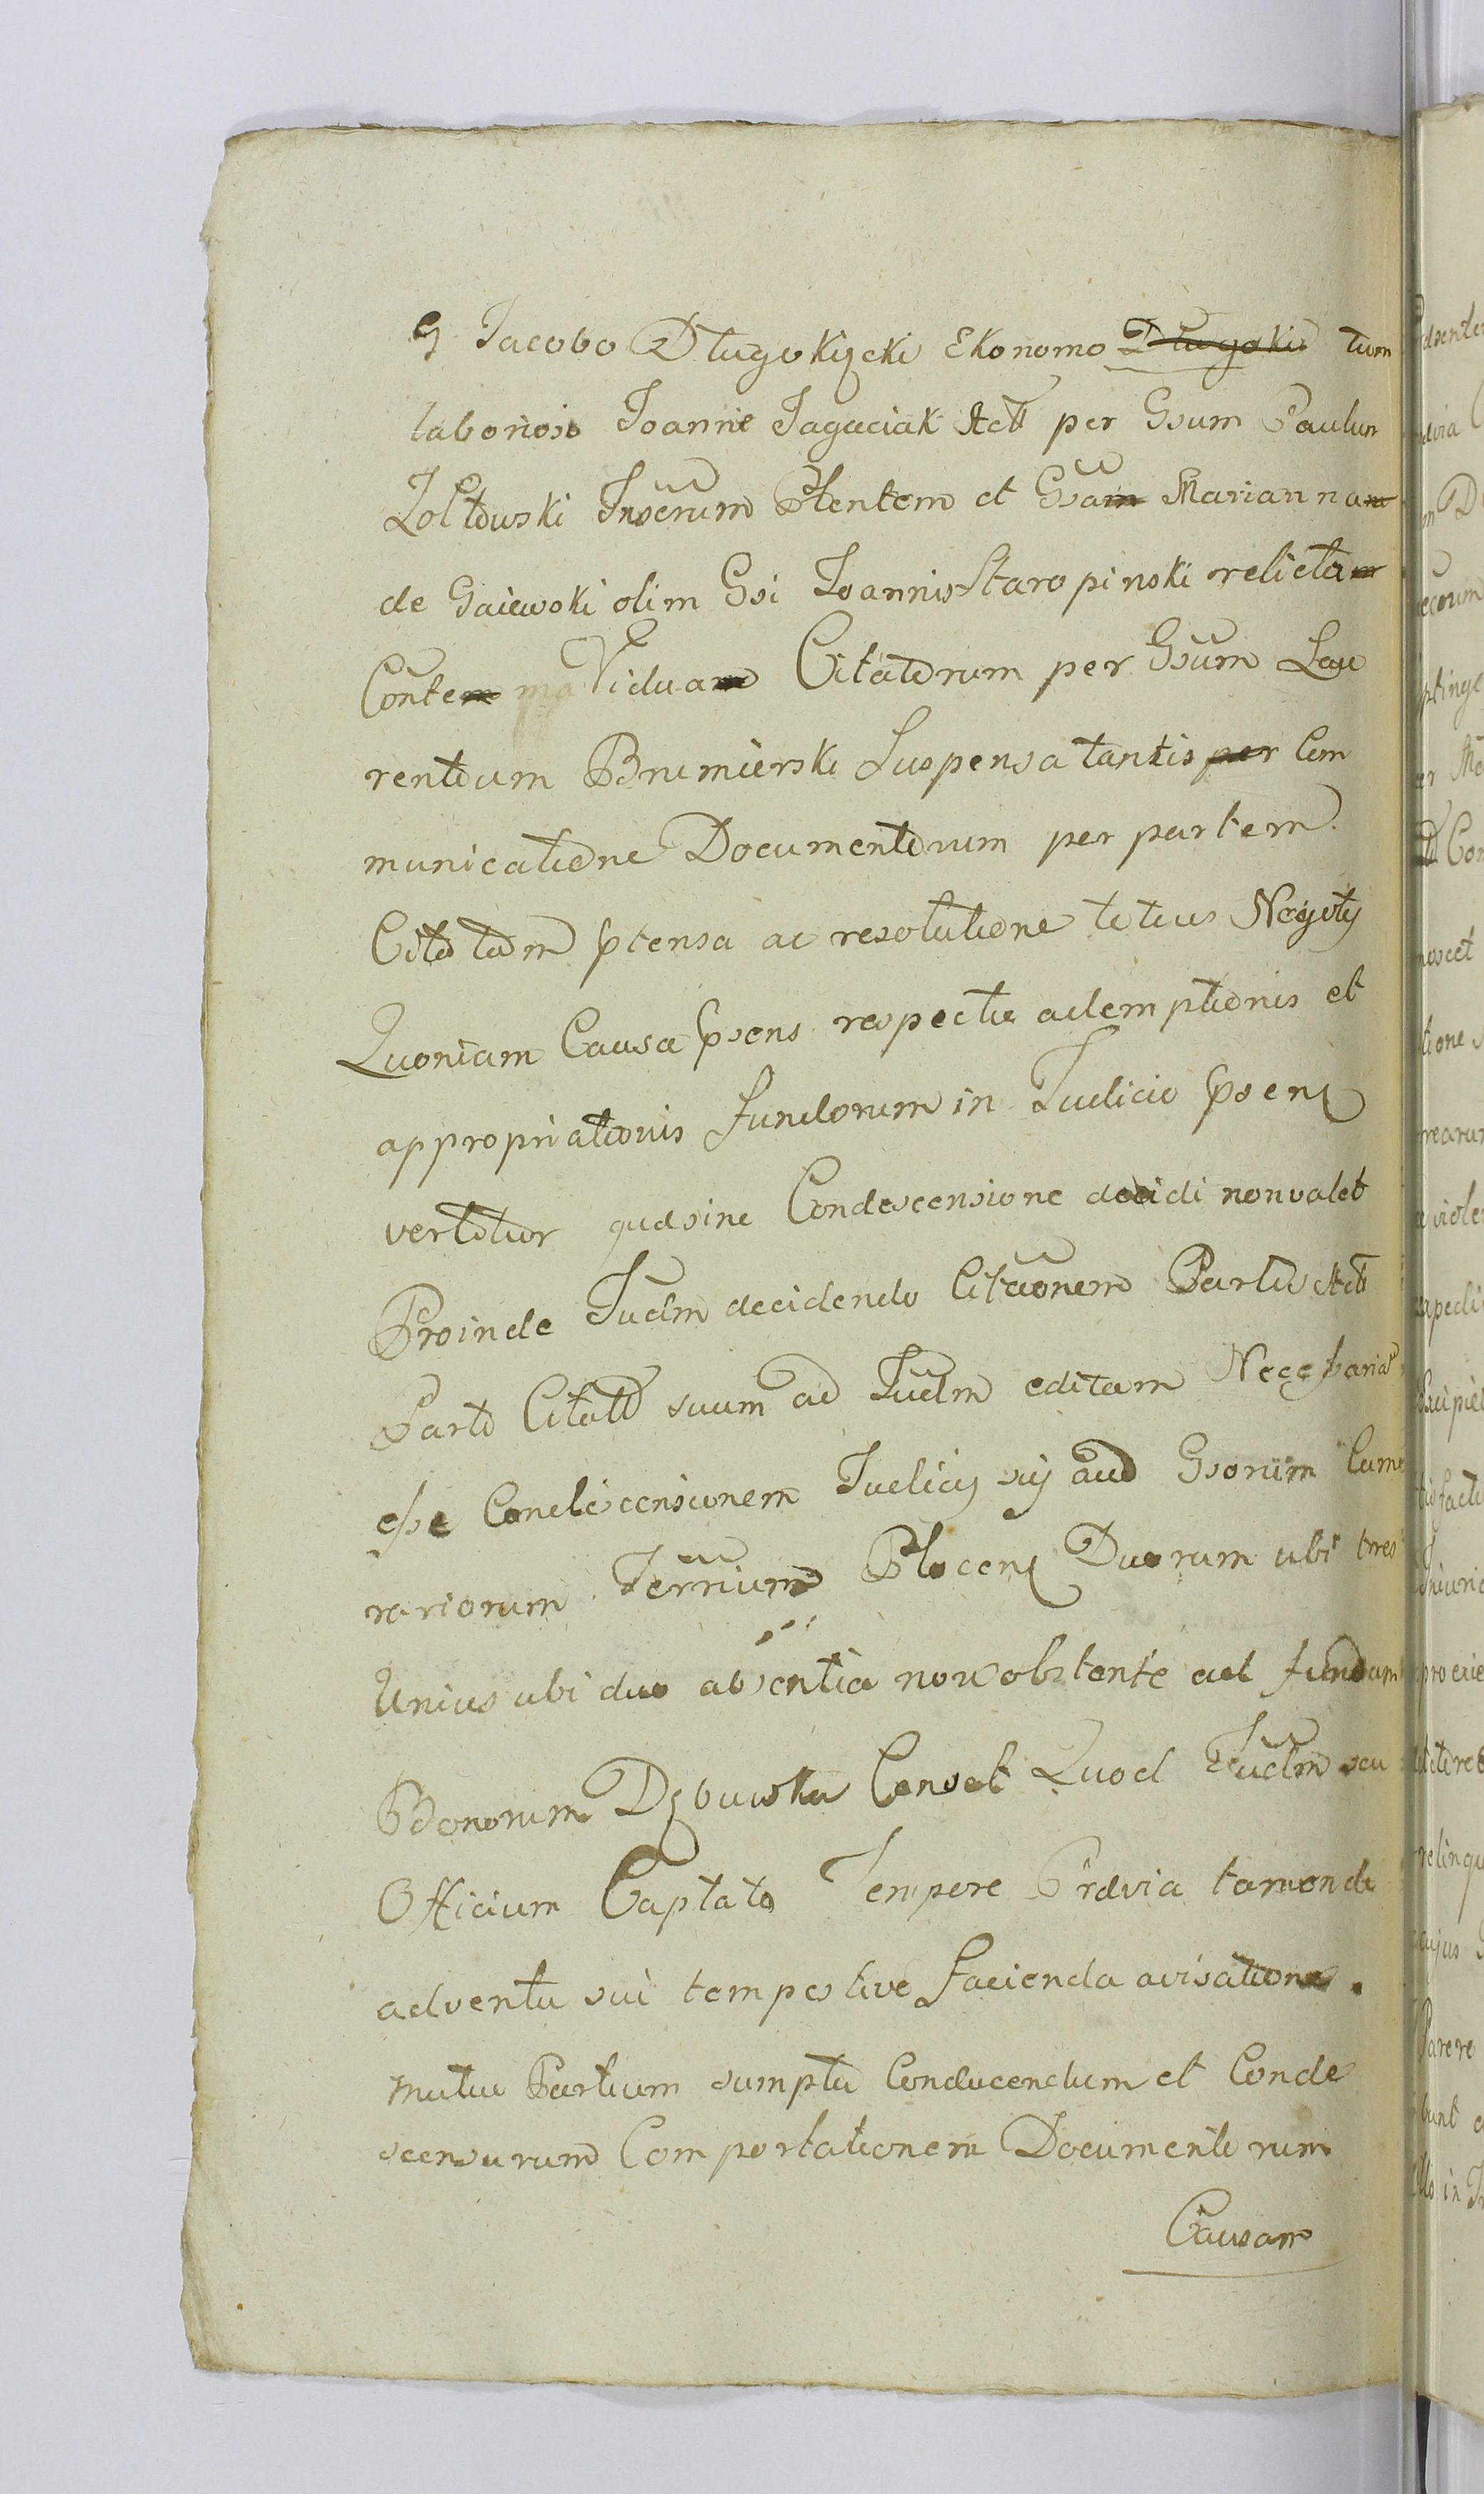 G Jacobo Długokięcki Ekonomo Długoki tum
laborioso Joanne Jagaciak Act per Gsum Paulum
Zołtowski Inserum Ptentem et Gsam Mariannam
de Gaiewski olim Gsi Joannis Staropinski relictam
Contem Viduam Citatorum per Gsum Lau
rentium Brumierski Suspensa tantisper Com
municatione Documentorum per partem
Citatam ptensa ac resolutione totius Negoty
Quoniam Causa psens respectu ademptionis et
appropriationis fundorum in Judicio psenj
vertitur qua sine Condescensione decidi non valet
Proinde Judm decidendo Citaonem Partis Act
Parti Citata suum ad Judm editam Necessaria
esse Condescensionem Judicy sij aud Gsorum Came
rariorum Terrium Plocenj Duorum ubi tres
Unius ubi duo absentia non obstante ad fundum
Bonorum Dzbowska Censet Quod Judm seu
Officium Captato Tempore Prævia tamen de
adventu sui tempestive facienda avisatione.
mutuo Partium sumptu Conducendum et Conde
scensurum Comportationem Documentorum
Causam